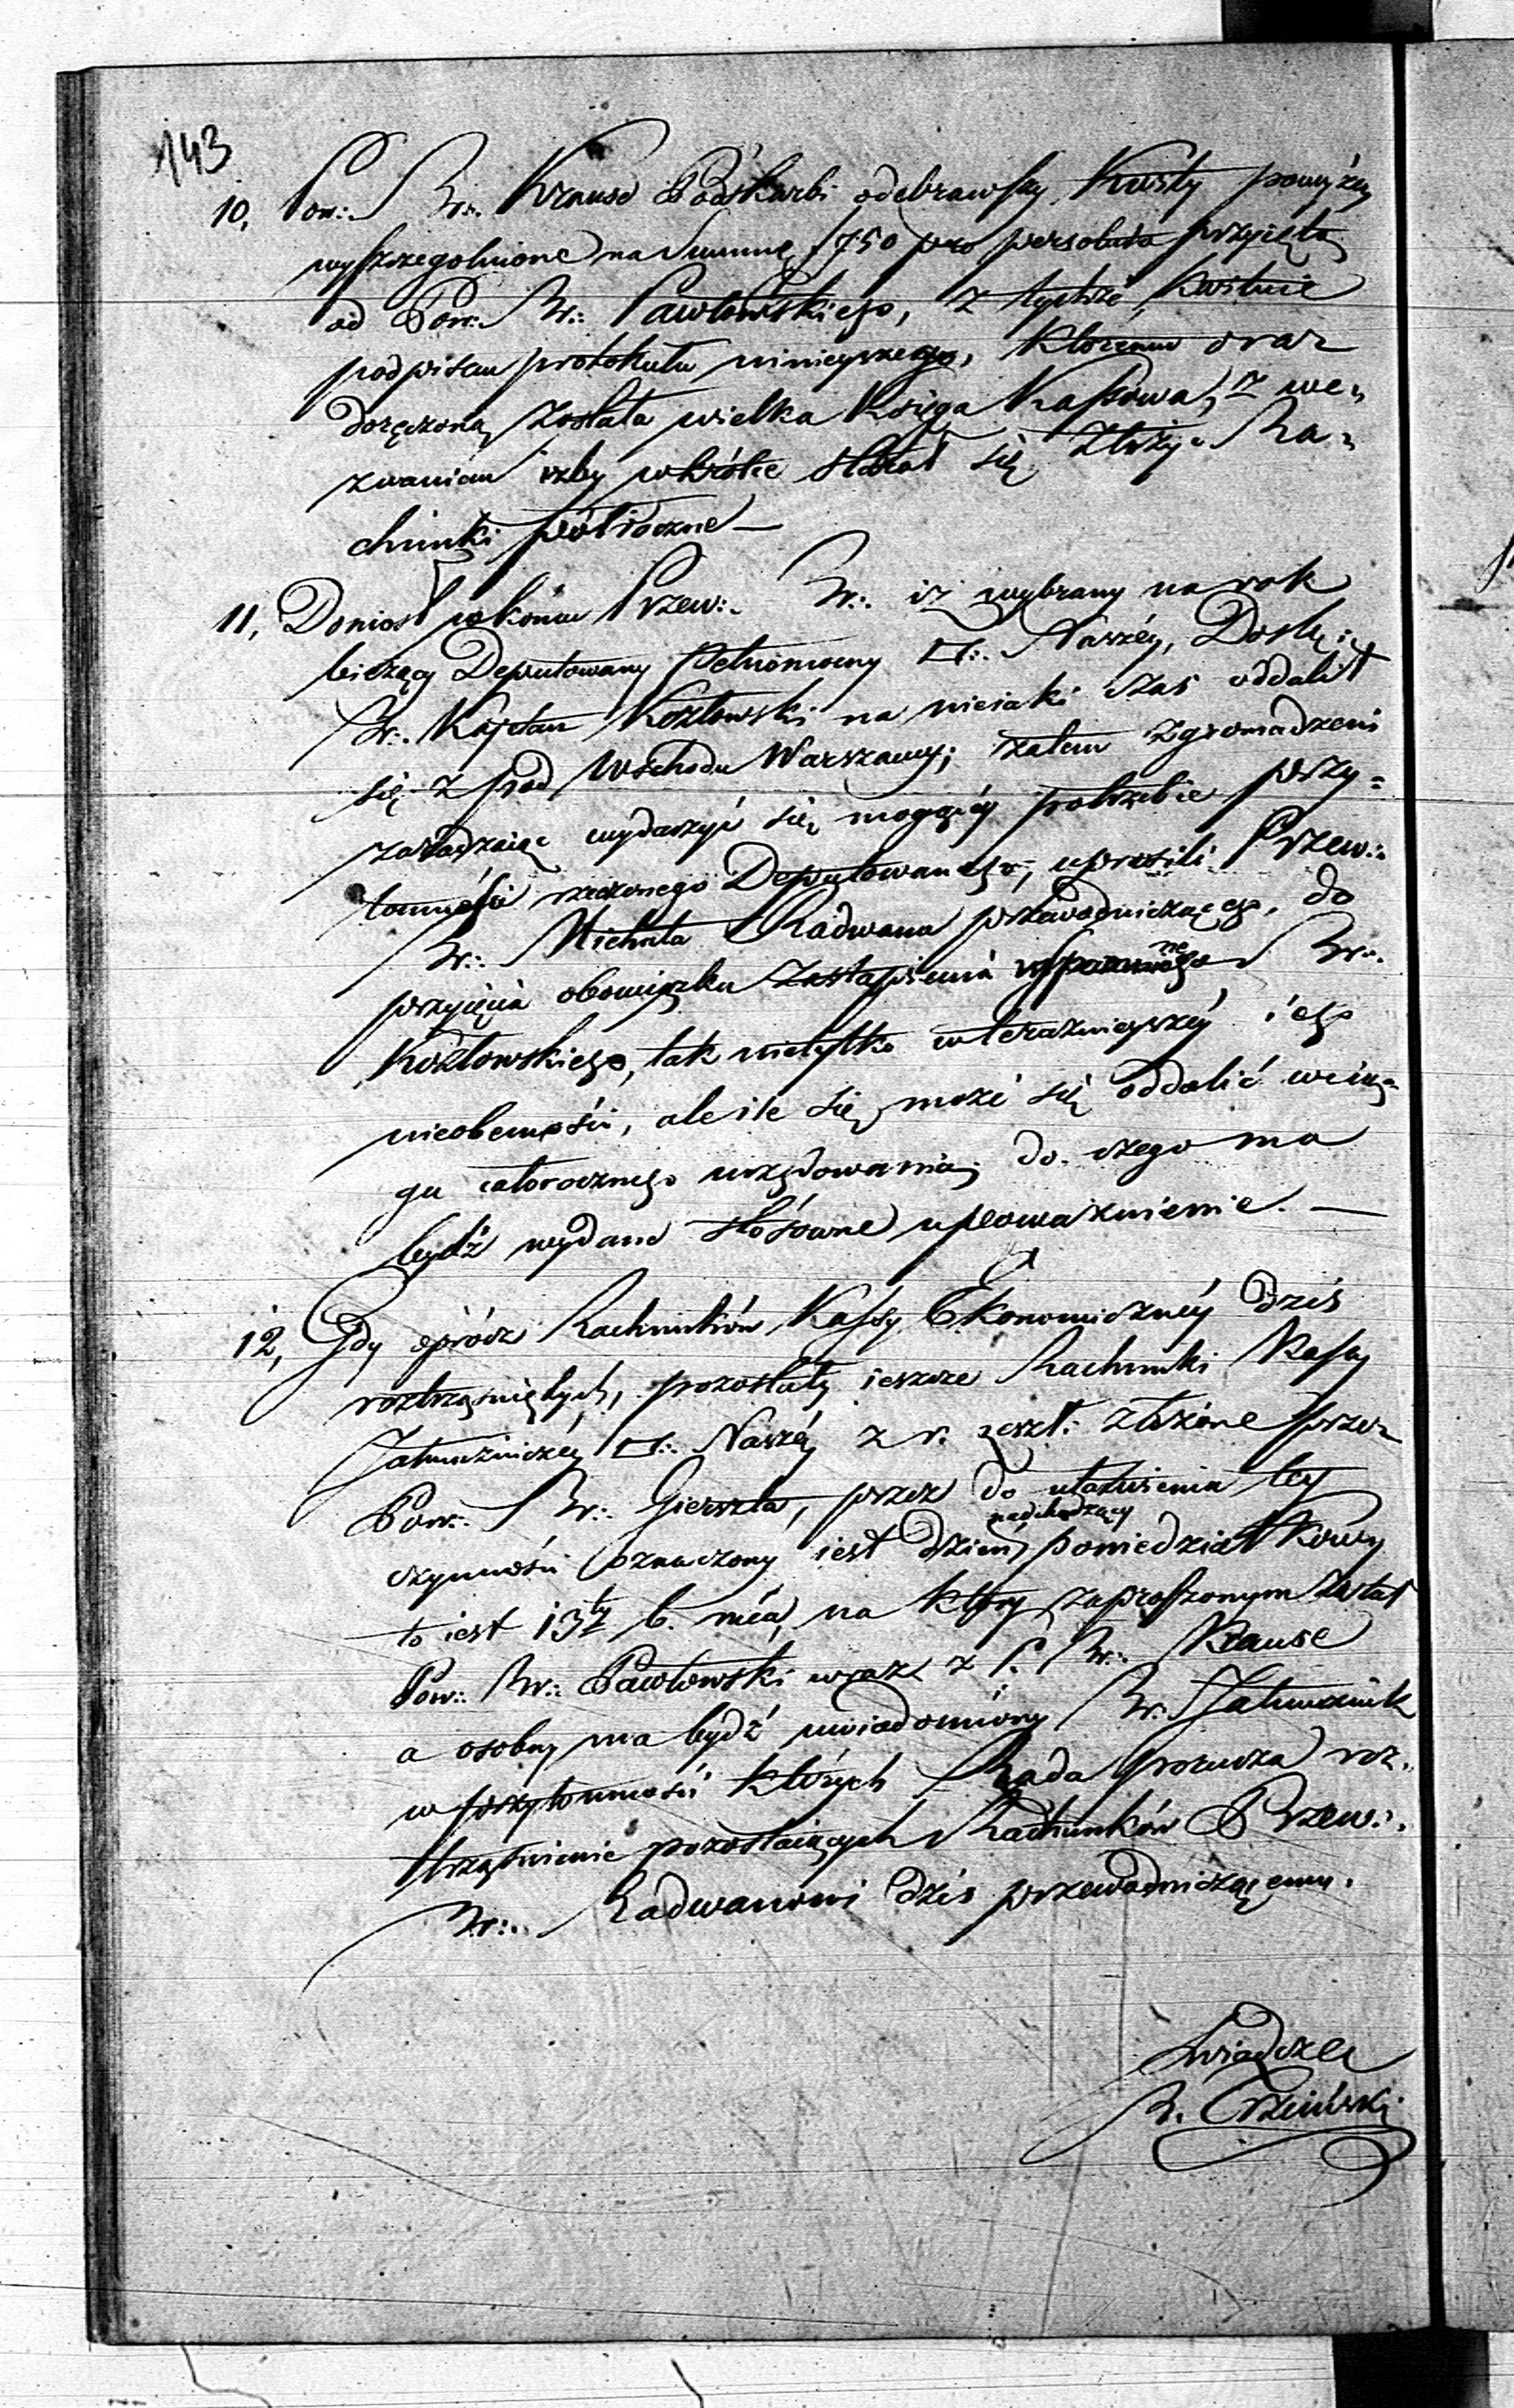 143
10, Pow:. Br:. Krause Podskarbi odebrawszy Kwity powyżey
wyszczegolnione na Summę f 750 pro persoluta przyjętą
od Pow:. Br:. Pawłowskiego, z tychże kwituie
podpisem protokułu ninieyszego, któremu oraz
doręczoną została wielka Księga Kassowa, z we„
zwaniem izby wkrótce starał się złożyć Ra„
chunki półroczne —
11, Doniosł wkońcu Przew:. Br:. iż wybrany na rok
bieżący Deputowany Pełnomocny □:. Naszéy, Dosk:.
Br:. Kajetan Kozłowski na nieiaki czas oddalił
się z pod Wschodu Warszawy; zatem zgromadzeni
zaradzaiąc wydarzyć się mogącéy potrzebie przy=
tomności rzeczonego Deputowanego, uprosili Przew:.
Br:. Michała Radwana przewodniczącego, do
przyjęcia obowiązku zastąpienia wspomnionego Br:.
Kozłowskiego, tak nietylko w teraźnieyszéy iego
nieobecności, ale ile się może się oddalić w cią„
gu całorocznego urzędowania; do czego ma
bydź wydane stosowne upoważnienie. —
12, Gdy oprócz Rachunków Kassy Ekonomicznéy dziś
roztrząśniętych, pozostały ieszcze Rachunki Kassy
Jałmużniczéy □:. Naszéy z r. zeszł: złożone przez
Pow:. Br:. Gierszta, przez do ułatwienia tey
czynności oznaczony iest dzień nadchodzący poniedziałkowy
to iest 13ty b. mca, na który zaproszonym został
Pow:. Br:. Pawłowski wraz z P. Br:. Krause
a osobny ma bydź uwiadomiony Br. Jałmużnik
w przytomności których Rada porucza roz„
trząśnienie pozostaiących Rachunków Przew:.
Br:. Radwanowi dziś przewodniczącemu.
Świadczę